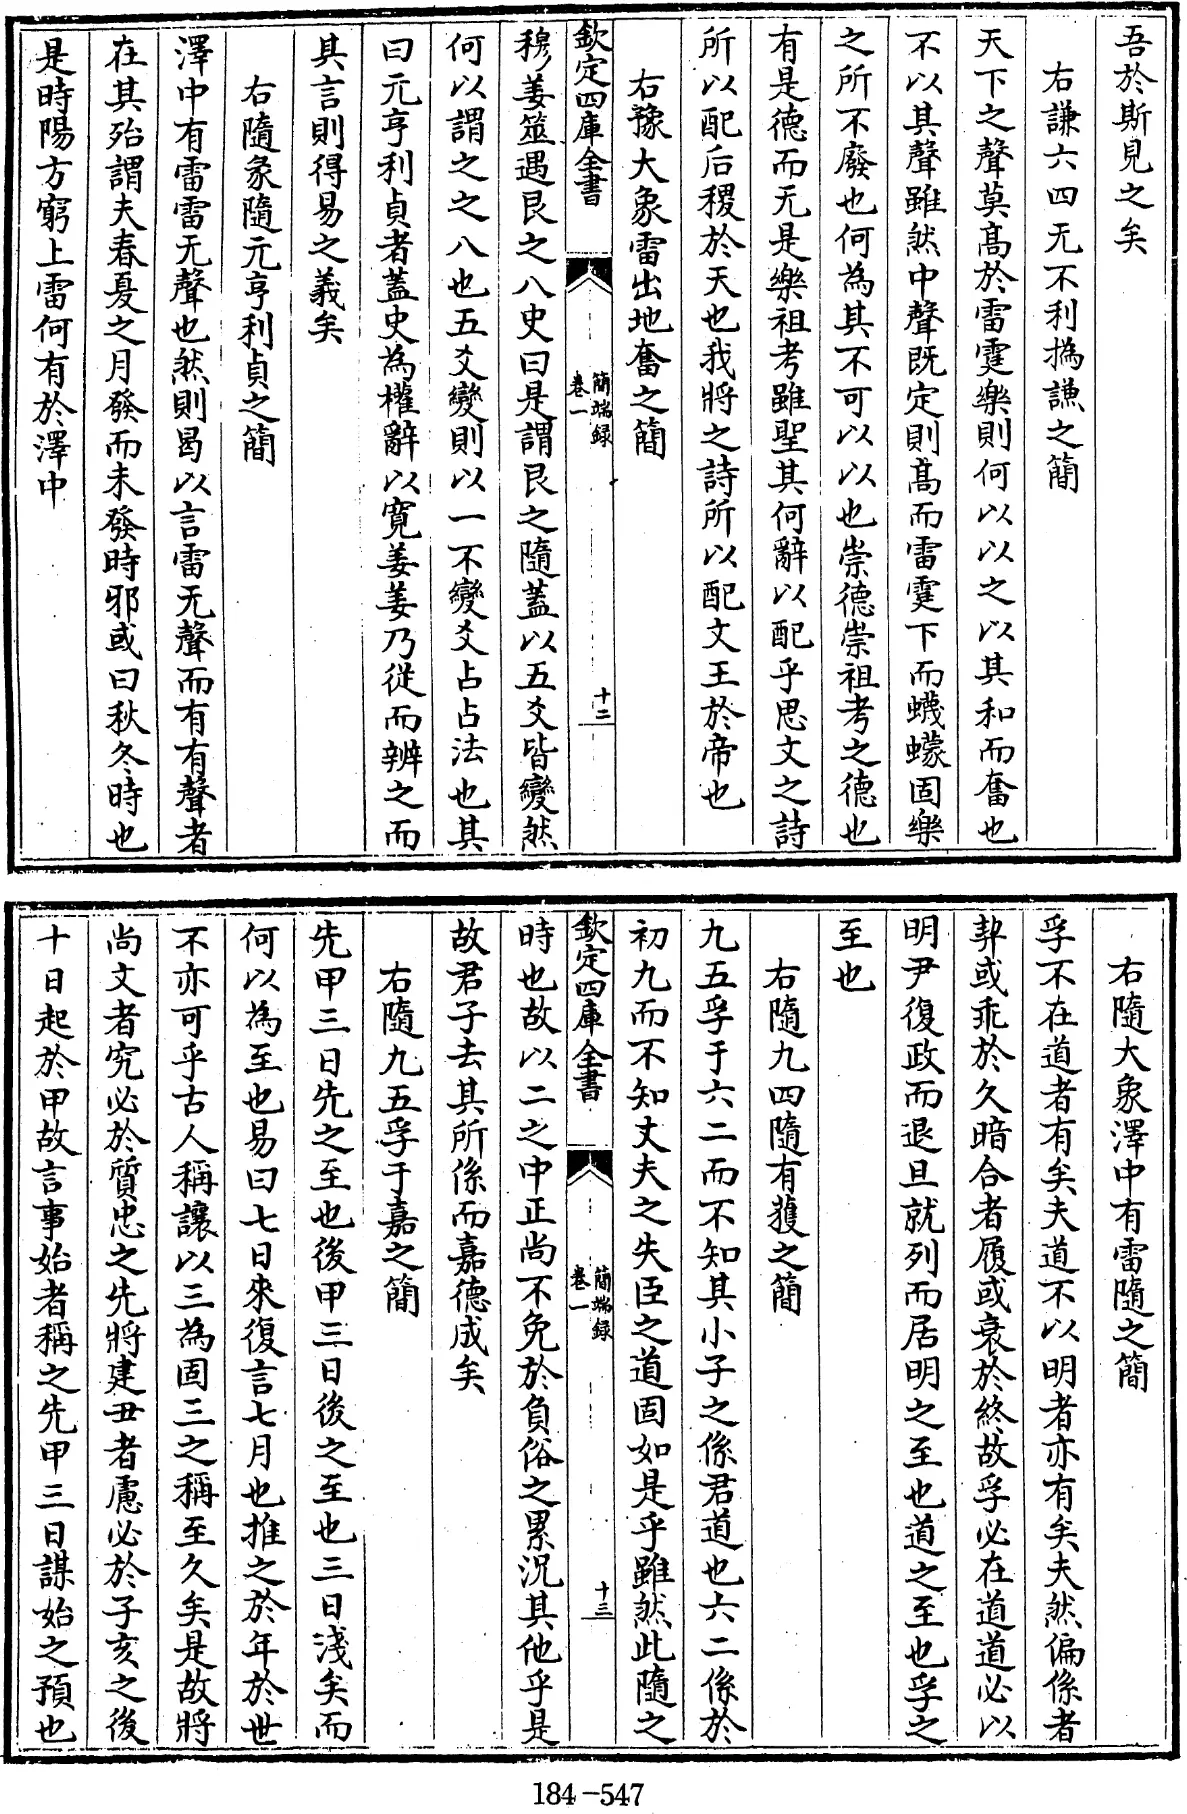 吾於斯見之矣
右謙六四无不利撝謙之簡
天下之聲莫髙於雷霆樂則何以以之以其和而奮也
不以其聲雖然中聲既定則髙而雷霆下而蠛蠓固樂
之所不廢也何為其不可以以也崇德崇祖考之德也
有是德而无是樂祖考雖聖其何辭以配乎思文之詩
所以配后稷於天也我將之詩所以配文王於帝也
右豫大象雷出地奮之簡
欽定四庫全書
簡端録
卷一
十二
穆姜筮遇艮之八史曰是謂艮之隨蓋以五爻皆變然
何以謂之之八也五爻變則以一不變爻占占法也其
曰元亨利貞者蓋史為權辭以寛姜姜乃從而辨之而
其言則得易之義矣
右隨彖隨元亨利貞之簡
澤中有雷雷无聲也然則曷以言雷无聲而有有聲者
在其殆謂夫春夏之月發而未發時邪或曰秋冬時也
是時陽方窮上雷何有於澤中
右隨大象澤中有雷隨之簡
孚不在道者有矣夫道不以明者亦有矣夫然偏係者
契或乖於久暗合者履或衰於終故孚必在道道必以
明尹復政而退旦就列而居明之至也道之至也孚之
至也
右隨九四隨有獲之簡
九五孚于六二而不知其小子之係君道也六二係於
初九而不知丈夫之失臣之道固如是乎雖然此隨之
欽定四庫全書
簡端録
卷一
十三
時也故以二之中正尚不免於負俗之累況其他乎是
故君子去其所係而嘉德成矣
右隨九五孚于嘉之簡
先甲三日先之至也後甲三日後之至也三日淺矣而
何以為至也易曰七日來復言七月也推之於年於世
不亦可乎古人稱讓以三為固三之稱至久矣是故將
尚文者究必於質忠之先將建丑者慮必於子亥之後
十日起於甲故言事始者稱之先甲三日謀始之預也
184-547